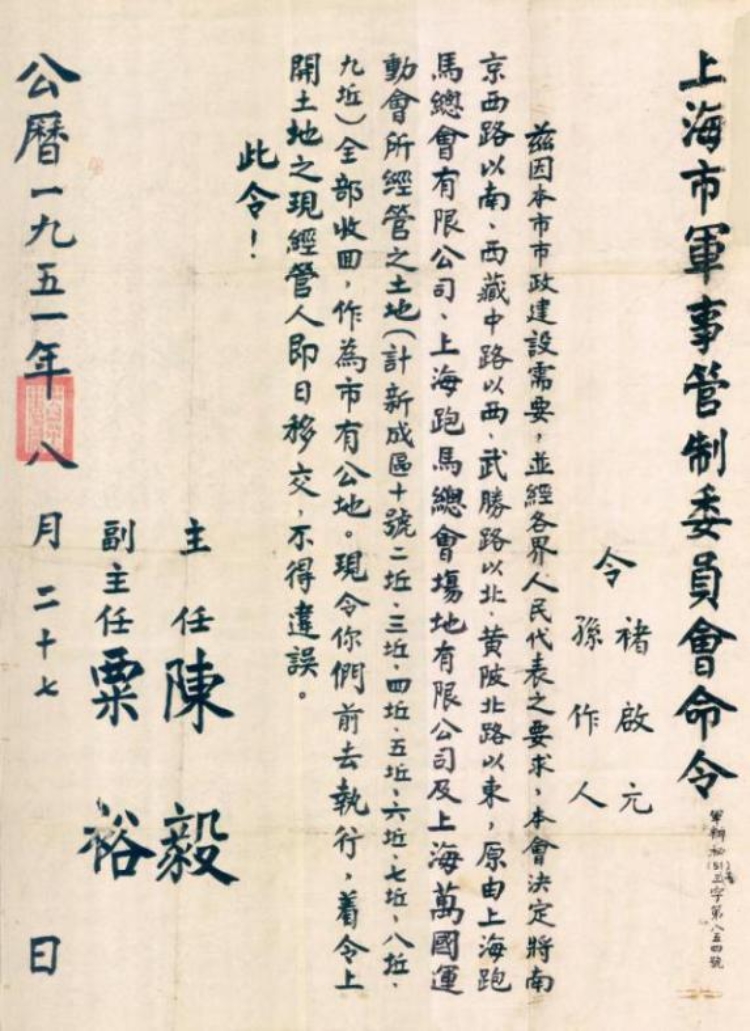 上海市軍事管制委員會命令
令
褚啟元
孫作人
茲因本市市政建設需要，並經各界人民代表之要求，本會決定將南
京西路以南、西藏中路以西、武勝路以北、黄陂北路以東，原由上海跑
馬總會有限公司、上海跑馬總會塲地有限公司及上海萬國運
動會所經管之土地（計新成區十號二坵、三坵、四坵、五坵、六坵、七坵、八坵、
九坵）全部收囬，作為市有公地。現令你們前去執行，着令上
開土地之現經管人即日移交，不得違誤。
此令！
主任陳毅
副主任粟裕
公曆一九五一年八月二十七日